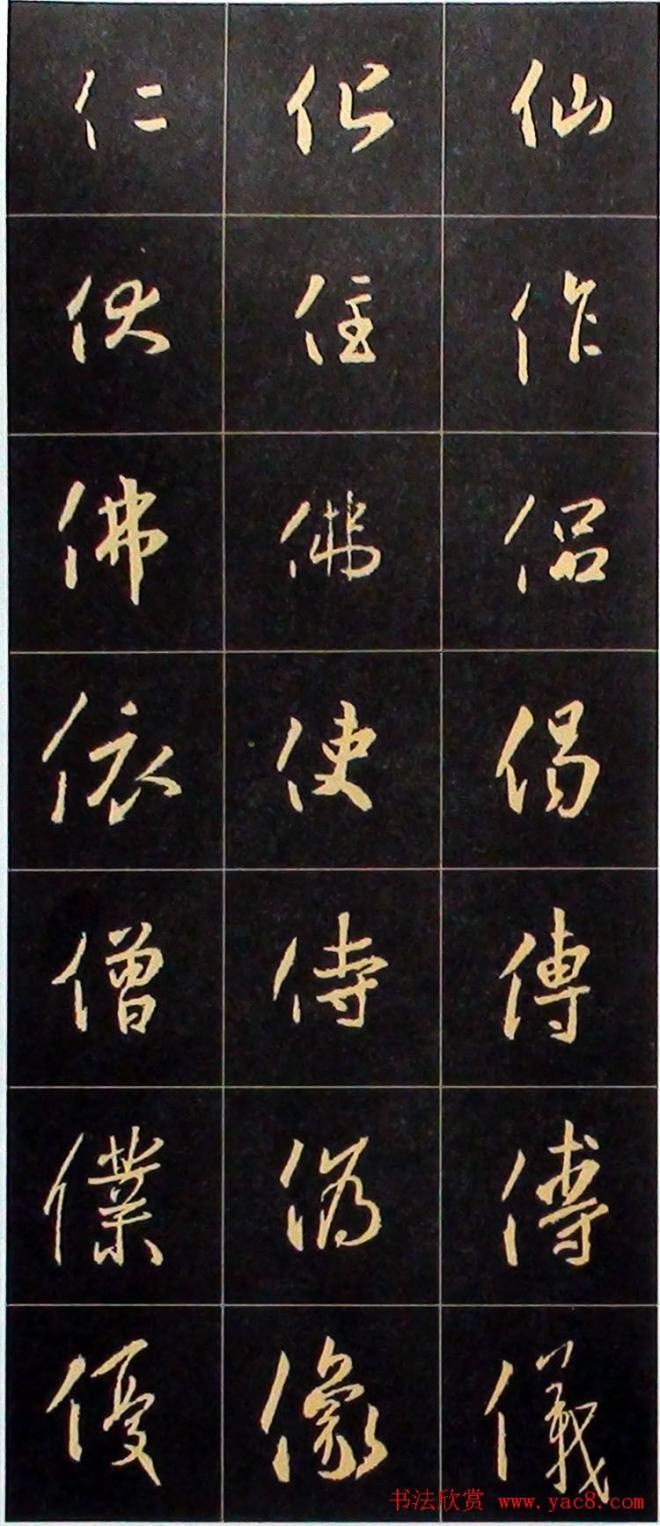 仁 仙
伏 住 作
佛 佛 侶
依 使 偈
僧 侍 傳
僕 偽 傅
優 像 儀
书法欣赏 www.yac8.com